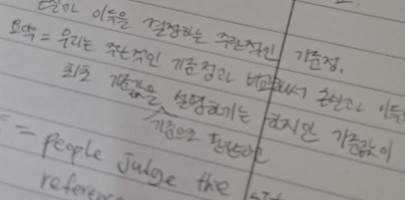 손실과 이득을 결정하는 주관적인 기준점.
요약 = 우리는 주관적인 기준점과 비교해서 손실과 이득
최초 기준값을 설명하기는 하지만 기준값이
기준으로 판단
= people judge the